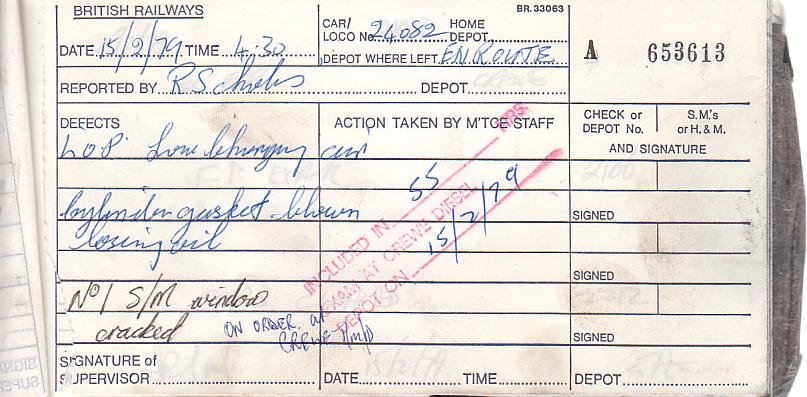 BRITISH RAILWAYS
BR.33063
DATE 15/2/79 TIME 4.30
CAR/ LOCO No. 24082 HOME DEPOT
DEPOT WHERE LEFT EN ROUTE
A 653613
REPORTED BY R Scholes DEPOT
DEFECTS
ACTION TAKEN BY M'TCE STAFF
CHECK or DEPOT No.
S.M.'s or H. & M.
AND SIGNATURE
L.O.P. Low
Cylinder gasket blown
losing oil
SIGNED
SIGNED
Nº1 S/M window
cracked
SIGNED
ON ORDER at
CREWE
INCLUDED IN 55 HRS
EXAM AT CREWE DIESEL
DEPOT ON 15/2/79
SIGNATURE of
SUPERVISOR
DATE TIME
DEPOT